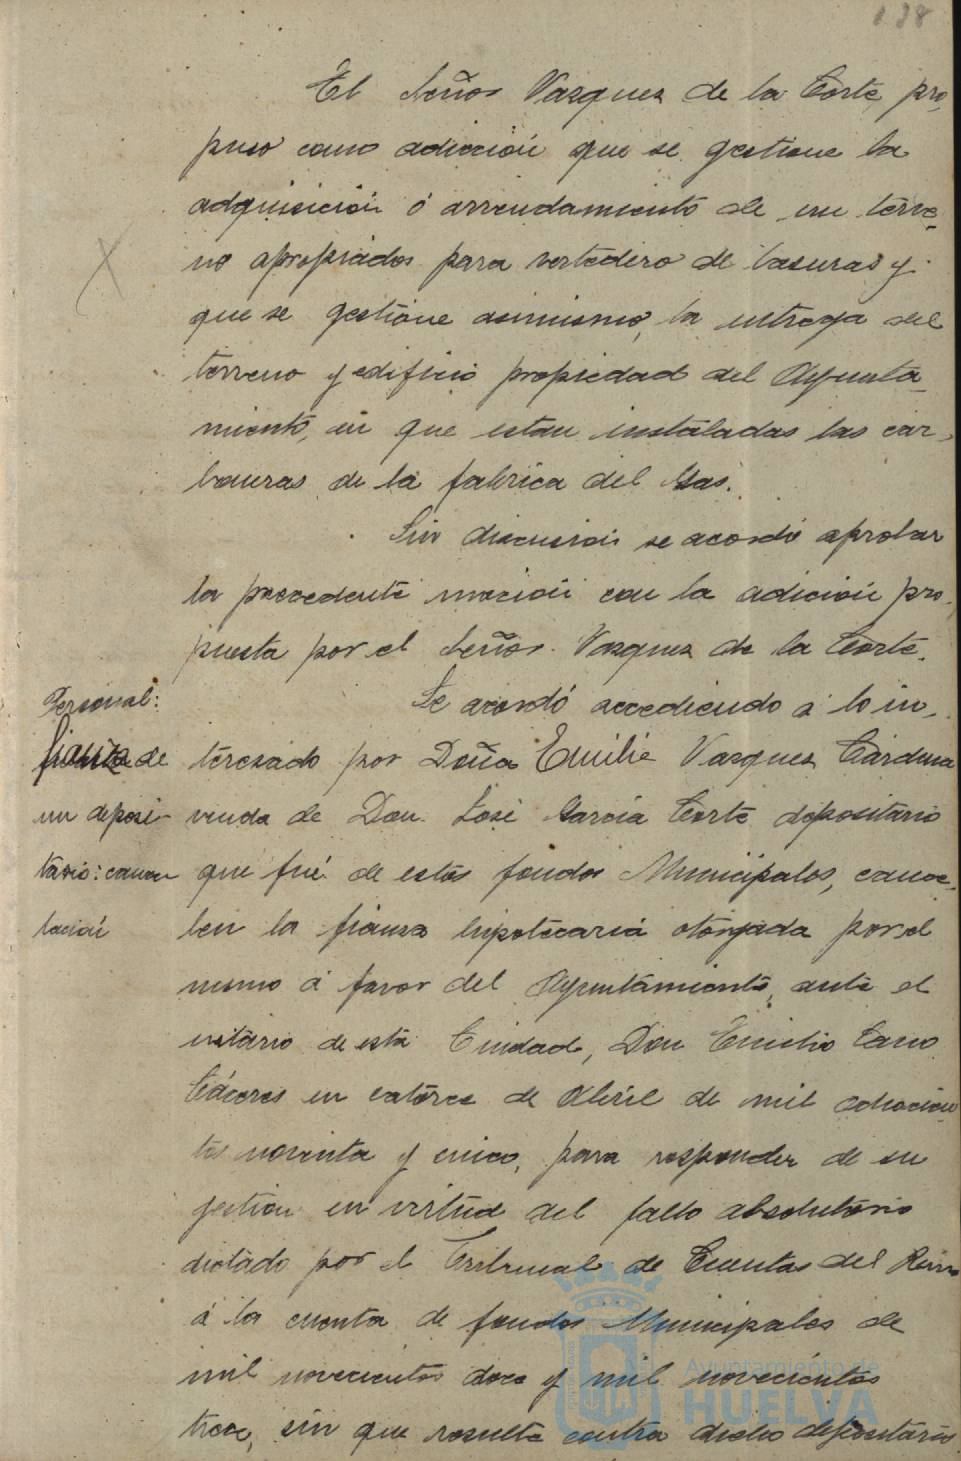 138
El Señor Vazquez de la Corte, pro-
puso como adicción que se gestione la
adquisición ó arrendamiento de un terre-
no apropiados para vertedero de basuras y
que se gestione asimismo, la entrega del
terreno y edificio propiedad del Ayunta-
miento, en que estan instaladas las car-
boneras de la fabrica del Gas.
Sin discusion se acordó aprobar
la precedente moción con la adición pro-
puesta por el Señor Vazquez de la Corte.
Personal:
fianza de
un deposi-
tario: cance-
lación
Se acordó accediendo á lo in-
teresado por Doña Emilia Vazquez Cárdenas
viuda de Don José Garcia Corte depositario
que fué de estos fondos Municipales, cance-
len la fianza hipotecaria otorgada por el
mismo á favor del Ayuntamiento, ante el
notario de esta Ciudad, Don Emilio Cano
Cáceres en catorce de Abril de mil ochocien-
tos noventa y cinco, para responder de su
gestion en virtud del fallo absolutorio
dictado por el Tribunal de Cuentas del Reino
á la cuenta de fondos Municipales de
mil novecientos doce y mil novecientos
trece, sin que resulte contra dicho depositario
Ayuntamiento de
HUELVA